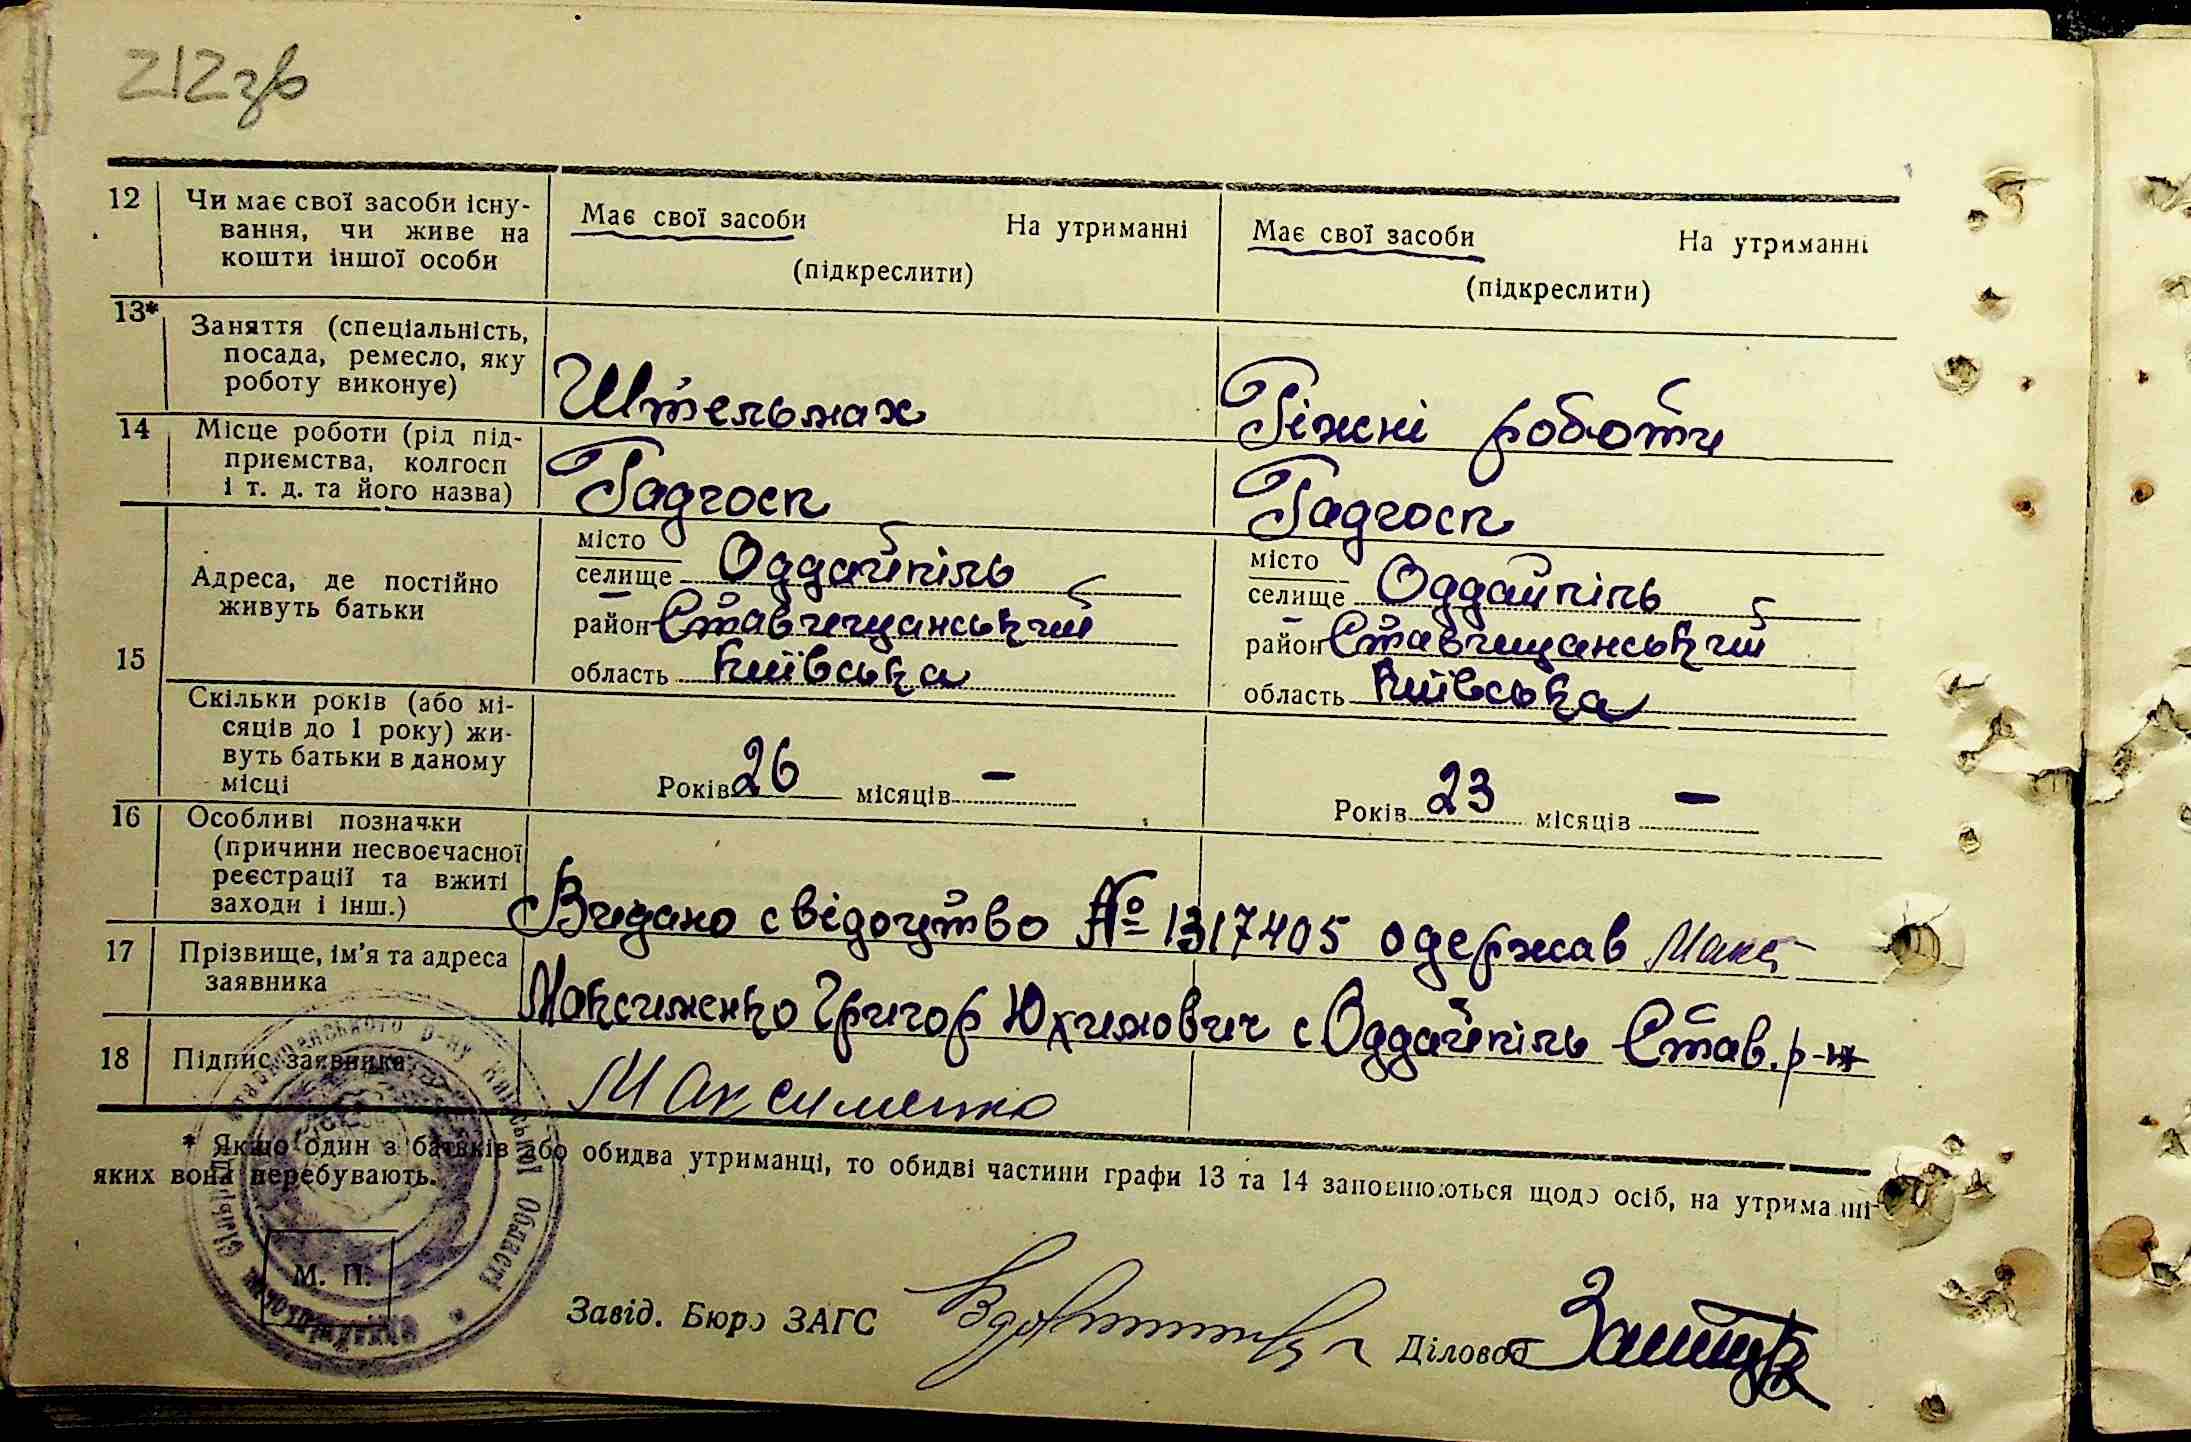 212зв
12 Чи має свої засоби існу-
вання, чи живе на
кошти іншої особи
Має свої засоби На утриманні
(підкреслити)
Має свої засоби На утриманні
(підкреслити)
13* Заняття (спеціальність,
посада, ремесло, яку
роботу виконує)
Штельмах
Ріжні роботи
14 Місце роботи (рід під-
приємства, колгосп
і т. д. та його назва)
Радгосп
Радгосп
15 Адреса, де постійно
живуть батьки
місто
селище Оддайпіль
район Ставищанський
область Київська
місто
селище Оддайпіль
район Ставищанський
область Київська
15 Скільки років (або мі-
сяців до 1 року) жи-
вуть батьки в даному
місці
Років 26 місяців —
Років 23 місяців —
16 Особливі позначки
(причини несвоєчасної
реєстрації та вжиті
заходи і інш.)
Видано свідоцтво № 1317405 одержав Макс
17 Прізвище, ім'я та адреса
заявника
Максименко Григор Юхимович с Оддайпіль Став. р-н
18 Підпис заявника
Максименко
* Якщо один з батьків або обидва утриманці, то обидві частини графи 13 та 14 заповнюються щодо осіб, на утриманні
яких вони перебувають.
М. П.
Ставищанського р-ну Київської Області
Завід. Бюро ЗАГС Діловод